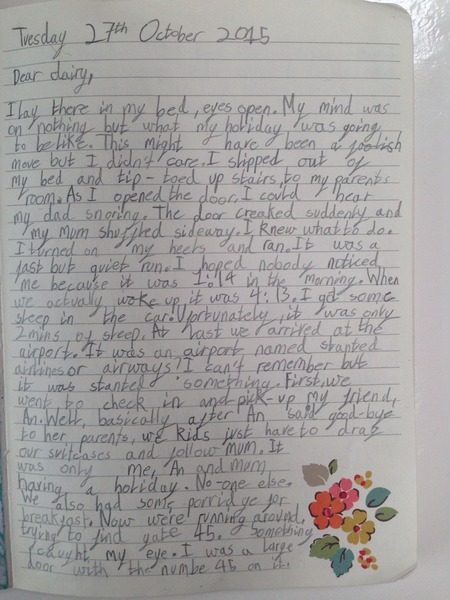 Tuesday 27th October 2015
Dear dairy,
I lay there in my bed, eyes open. My mind was
on nothing but what my holiday was going
to be like. This might have been a foolish
move but I didn't care. I slipped out of
my bed and tip-toed up stairs, to my parents
room. As I opened the door, I could hear
my dad snoring. The door creaked suddenly and
my mum shuffled sideway. I knew what to do.
I turned on my heels and ran. It was a
fast but quiet run. I hoped nobody noticed
me because it was 1:14 in the morning. When
we actually woke up it was 4:13. I got some
sleep in the car. Ufortunately, it was only
2mins of sleep. At last we arrived at the
airport. It was an airport named stanted
airlines or airways! I can't remember but
it was stanted something. First, we
went to check in and pick-up my friend,
An. Well, basically after An said good-bye
to her parents, we kids just have to drag
our suitcases and follow mum. It
was only me, An and mum
having a holiday. No-one else.
We also had some porridge for
breakfast. Now were running around,
trying to find gate 45. Something
caught my eye. I was a large
door with the numbe 45 on it.